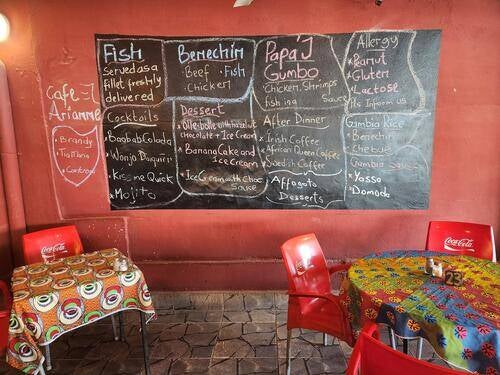 Cafe
Arianne
• Brandy
• Tia Maria
Fish
Served as a
fillet freshly
delivered
Cocktails
• Baobab Colada
• Wonjo Daiquiri
• Kiss me Quick
• Mojito
Benechin
• Beef • Fish
• Chicken
Dessert
chocolate + Ice Cream
• Banana Cake and
Ice Cream
• Ice Cream with Choc
Sauce
Papa J
Gumbo
• Chicken, Shrimps
Sauce
After Dinner
• Irish Coffee
• African Queen Coffee
• Swedish Coffee
Affogato
Desserts
Allergy
• Peanut
• Gluten
• Lactose
Pls Inform us
Gambia Rice
• Benechin
• Chebue
Gambia Sauce
• Yassa
• Domoda
Coca-Cola
Coca-Cola
Coca-Cola
23